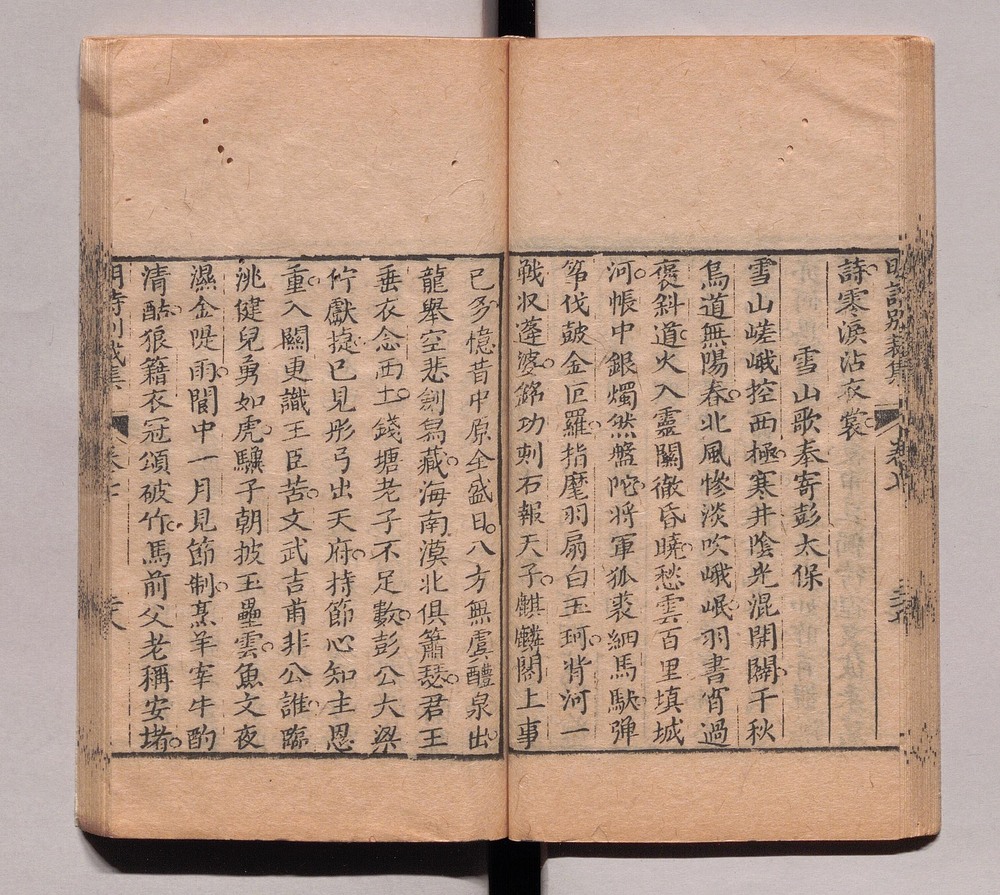 詩寒淚沾衣裳
雪山歌奉寄彭太保
雪山嵯峨控西極寒井陰光混開闢千秋
鳥道無陽春北風慘淡吹峨岷羽書宵過
褒斜道火入靈關徹昏曉愁雲百里塡城
河帳中銀燭然盤陀將軍狐裘細馬馱彈
箏伐鼓金叵羅指麾羽扇白玉珂背河一
戰収蓬婆銘功刺石報天子麒麟閣上事
已多憶昔中原全盛日八方無虞醴泉出
龍舉空悲劍舄藏海南漠北俱簫瑟君王
垂衣念西土錢塘老子不足數彭公大梁
佇獻㨗已見彤弓出天府持節心知主恩
重入關更識王臣苦文武吉甫非公誰臨
洮健兒勇如虎驥子朝披玉壘雲魚文夜
濕金隄雨閬中一月見節制烹羊宰牛酌
清酤狼籍衣冠頌破竹馬前父老稱安堵